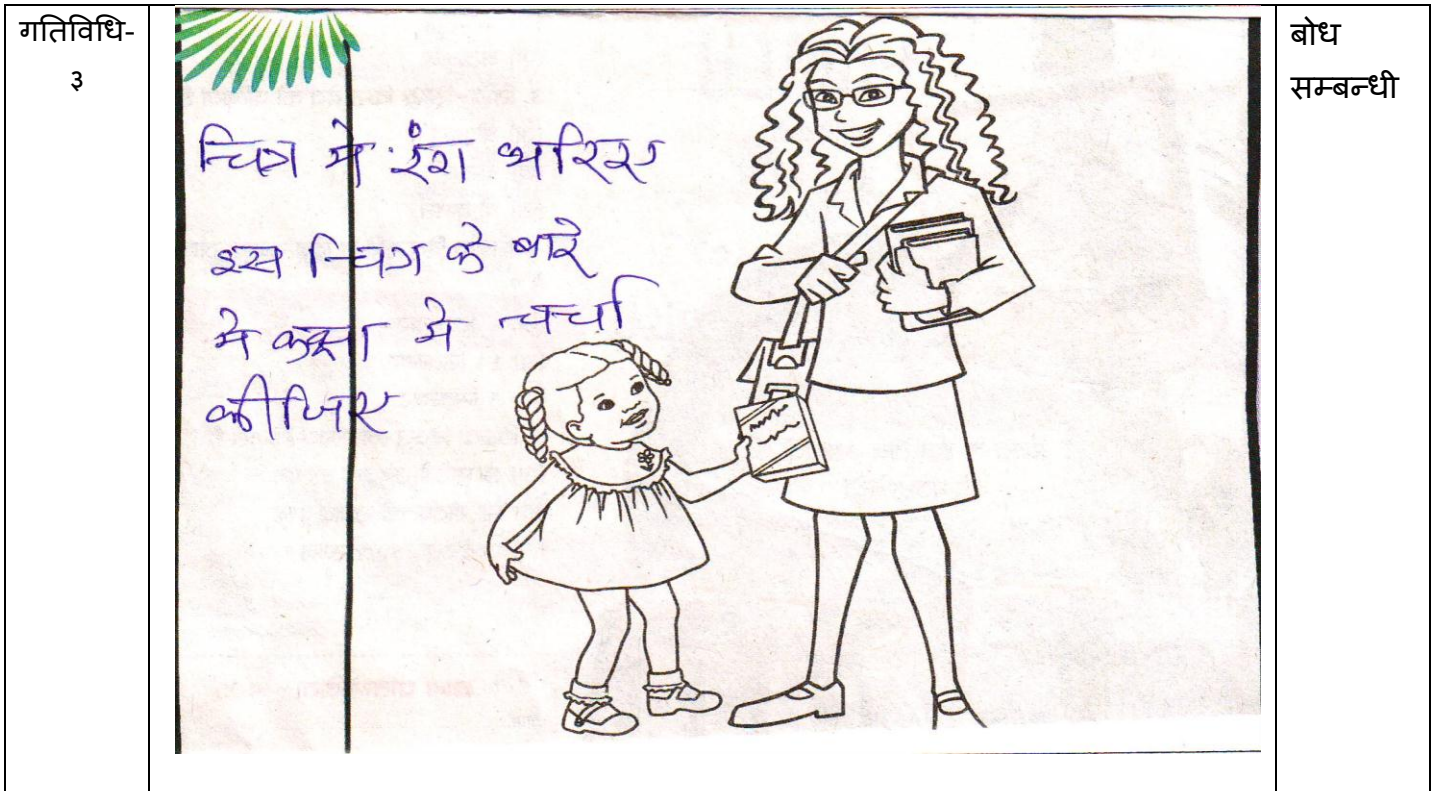 गतिविधि-
३
चित्र मे रंग भरिए
इस चित्र के बारे
मे कक्षा मे चर्चा
कीजिए
बोध
सम्बन्धी